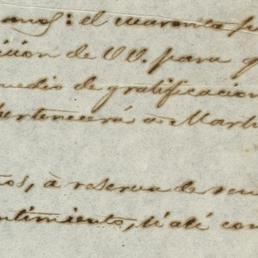 anos: el cuarenta
ición de VV. para q
medio de gratificacion
pertenecerá a Marti
os, á reserva de
ntimiento, si así con